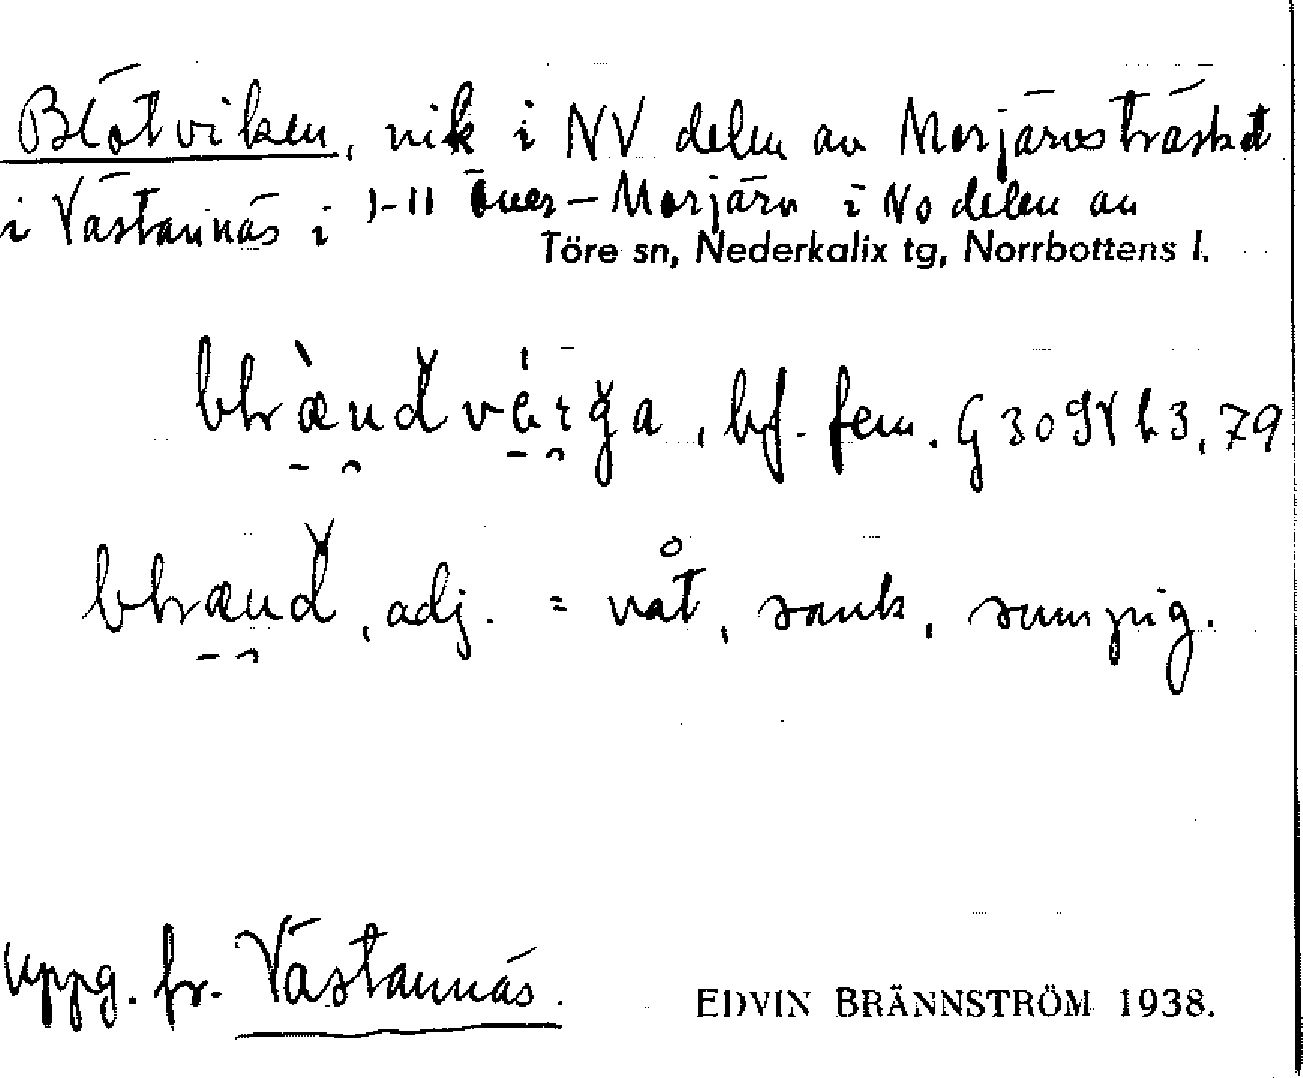 Blötviken, vik i NV delen av Morjärvsträsket
i Västannäs i 1-11 Över-Morjärv i NO delen av
Töre sn, Nederkalix tg, Norrbottens l.
bf. fem.
adj. = våt, sank, sumpig.
uppg. fr. Västannäs.
EDVIN BRÄNNSTRÖM 1938.